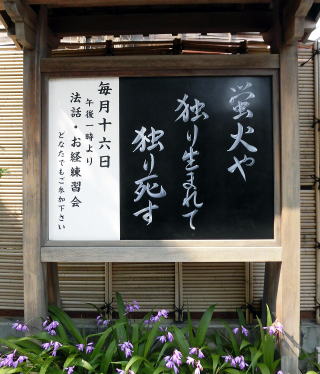 蛍火や
独り生まれて
独り死す
毎月十六日
午後一時より
法話・お経練習会
どなたでもご参加下さい